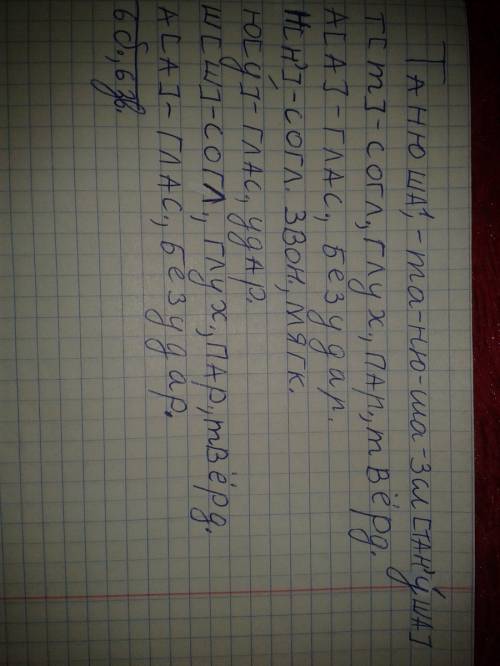 Танюша¹, - та-ню-ша - 3сл [тан'у́ша]
Т[т] - согл, глух, пар, твёрд.
А[а] - глас, безудар.
Н[н'] - согл. звон, мягк.
Ю[у́] - глас, удар.
Ш[ш] - согл, глух, пар, твёрд.
А[а] - глас, безудар.
6б., 6зв.